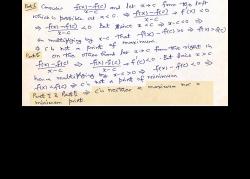 Part I Consider f(x)-f(c) / x-c and let x→c from the left
which is possible at x<c. ⇒ f(x)-f(c) / x-c → f'(x) < 0
⇒ f(x)-f(c) / x-c < 0 But since x→c ⇒ x-c <0 ⇒
on multiplying by x-c that f(x)-f(c) >0 ⇒ f(x)>f(c)
⇒ c is not a point of maximum
Part II On the other hand for x→c from the right in
f(x)-f(c) / x-c ⇒ f(x)-f(c) / x-c → f'(c) <0. But since x>c
on multiplying by x-c >0 ⇒ f(x)-f(c) <0 ⇒
f(x)<f(c) ⇒ c is not a point of minimum
Part I & Part II ⇒ c is neither a maximum nor a
minimum point.